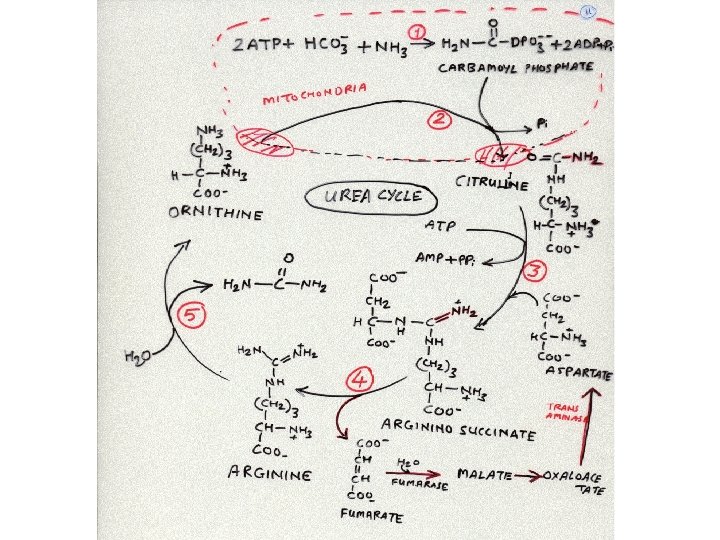 11
2ATP+ HCO3- + NH3 ① → H2N-C-OPO3-- +2ADP+Pi
O
CARBAMOYL PHOSPHATE
MITOCHONDRIA
② Pi
NH3
(CH2)3
H-C-NH3+
COO-
ORNITHINE
UREA CYCLE
CITRULINE
O=C-NH2
NH
(CH2)3
H-C-NH3+
COO-
ATP
AMP+PPi
③
O
H2N-C-NH2
⑤
H2O
COO-
CH2
H C-N-C=NH2+
H
COO-
NH
(CH2)3
CH-NH3+
COO-
ARGININO SUCCINATE
COO-
CH2
HC-NH3+
COO-
ASPARTATE
TRANS
AMINASE
④
H2N C=NH2+
NH
(CH2)3
CH-NH3+
COO-
ARGININE
COO-
CH
CH
COO-
FUMARATE
H2O
FUMARASE
MALATE → OXALOACE
TATE